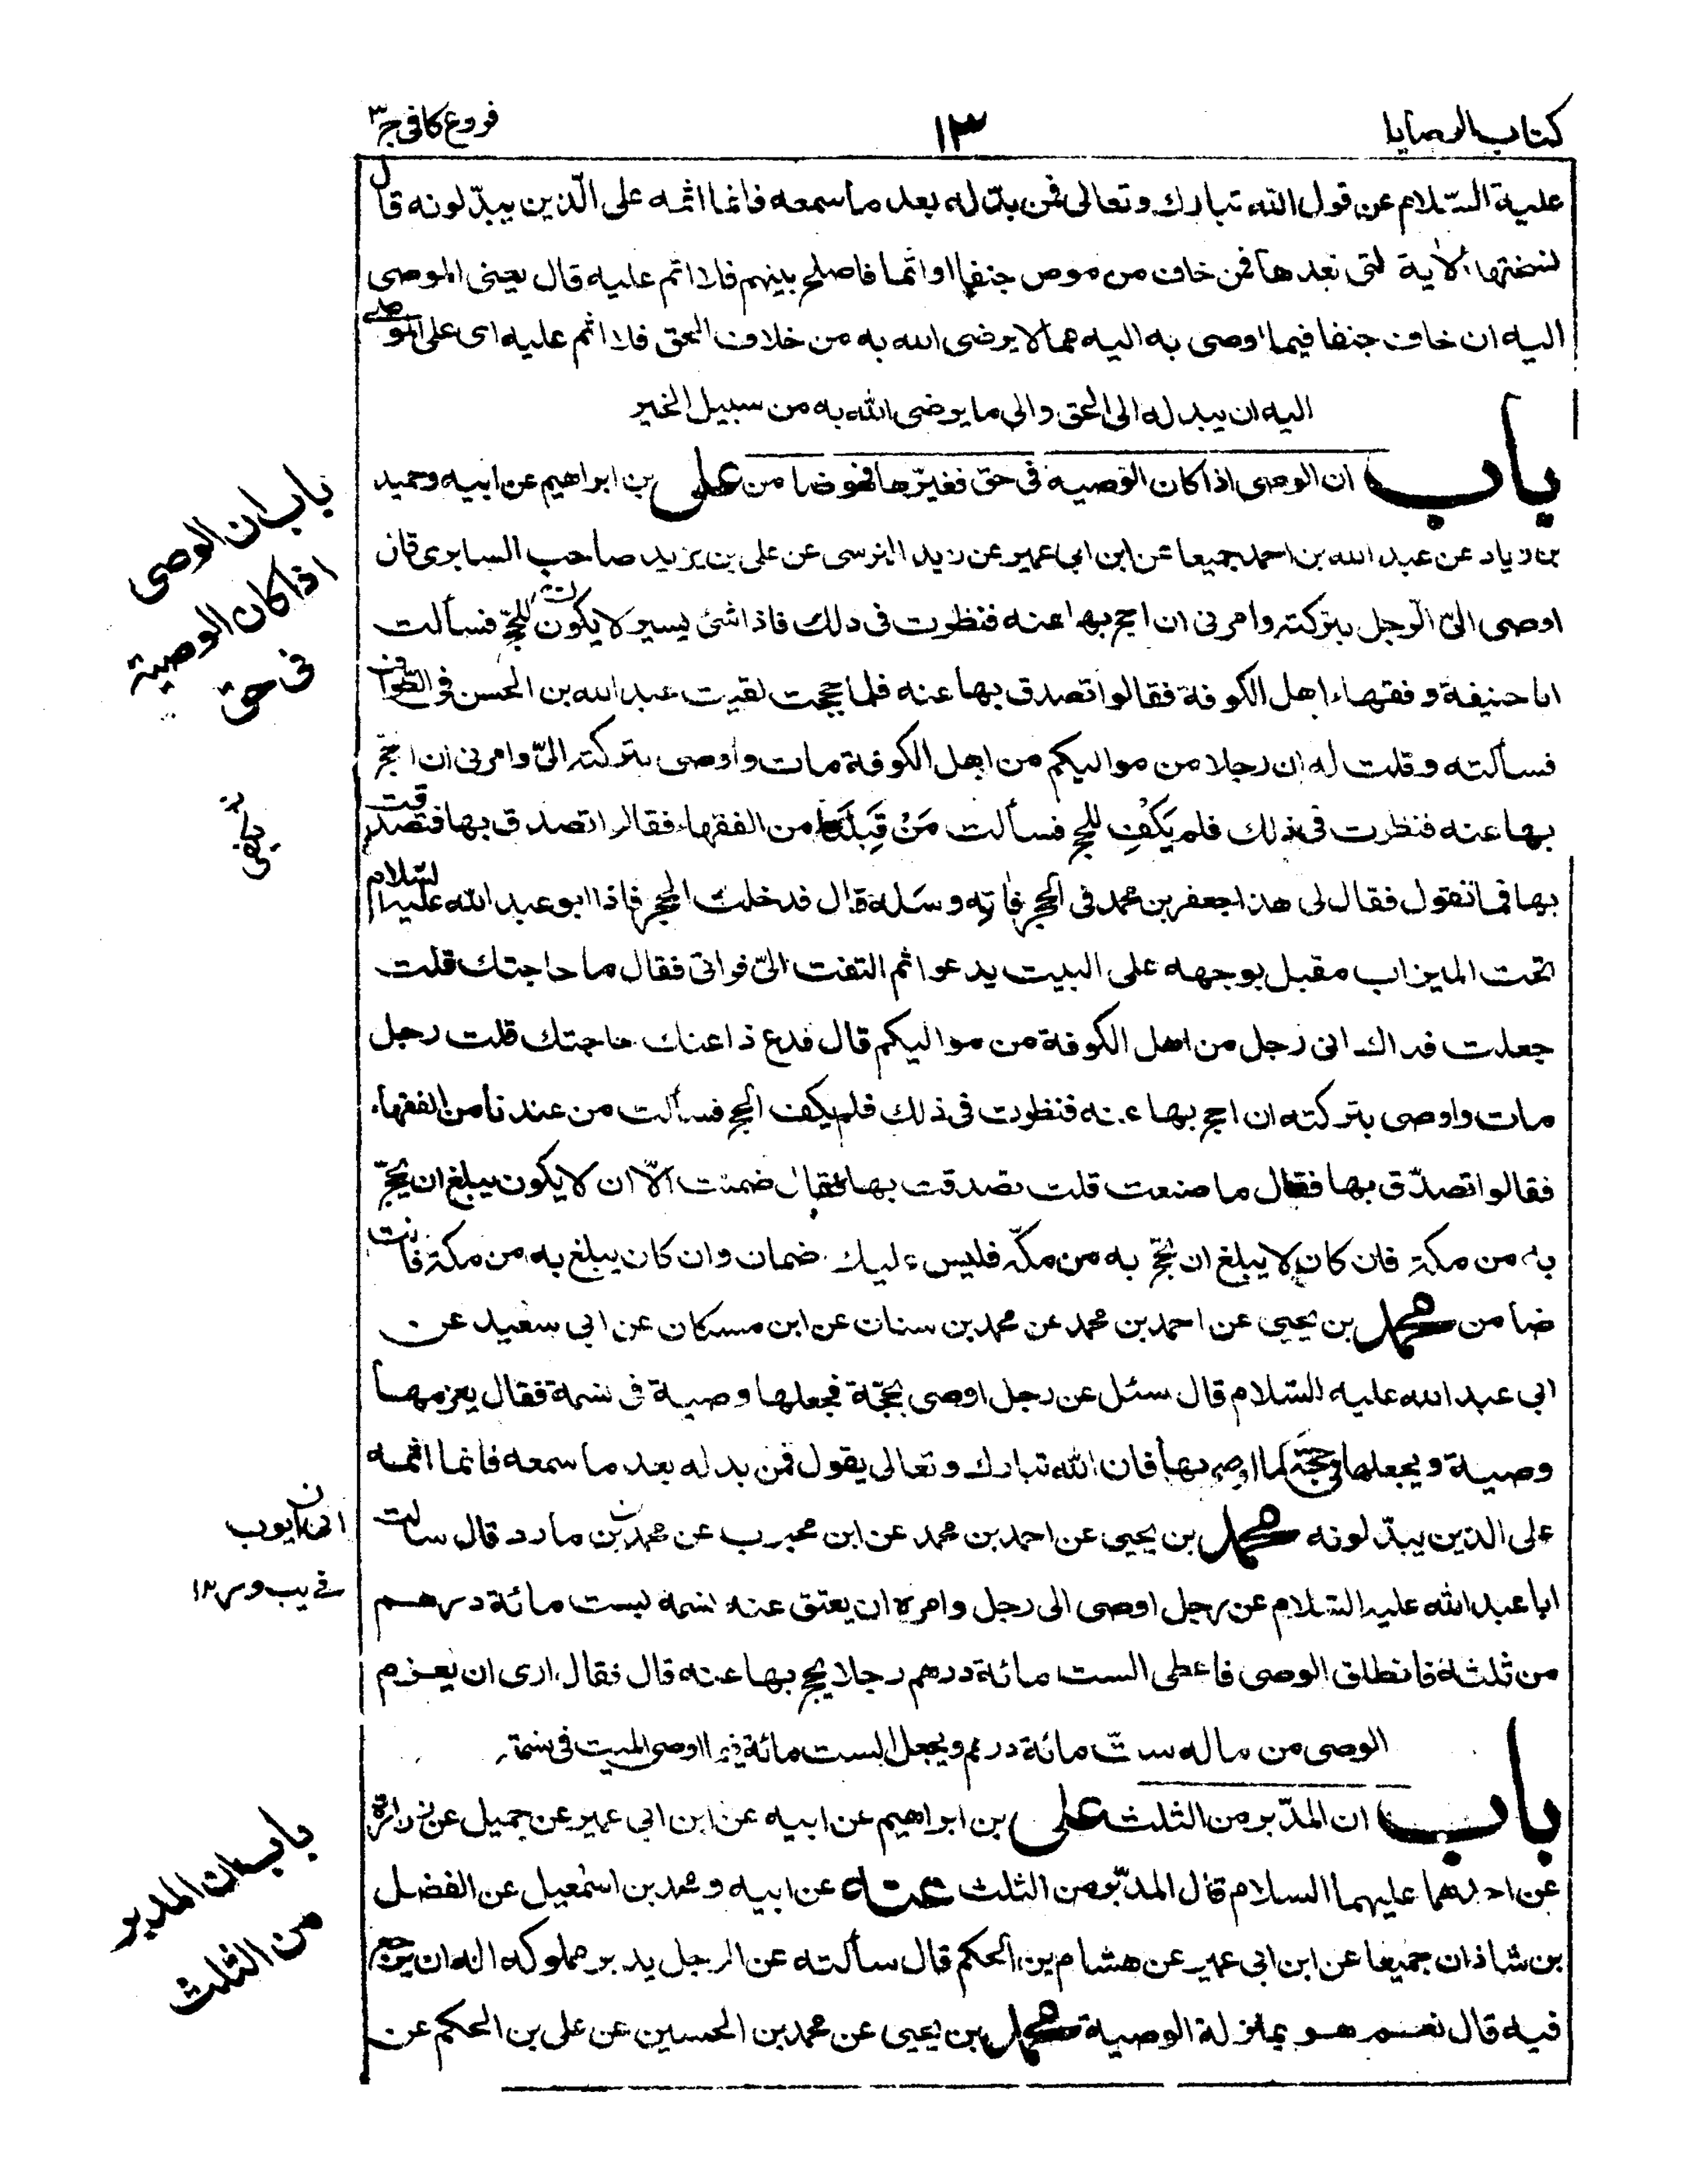 كتاب الوصايا
١٣
فروع كافى ج٣
علية السّلام عن قول الله تبارك وتعالى فمن بدّله بعد ما سمعه فانما اثمه على الّذين يبدّلونه قال
نسختها الاية التى بعدها فمن خاف من موص جنفا او اثما فاصلح بينهم فلا اثم عليه قال يعنى الموصى
اليه ان خاف جنفا فيما اوصى به اليه مما لا يرضى الله به من خلاف الحق فلا اثم عليه اى على الموصى
اليه ان يبدله الى الحق والى ما يرضى الله به من سبيل الخير
باب ان الوصى اذا كان الوصية فى حق فغيّرها فهو ضامن على بن ابراهيم عن ابيه وحميد
بن زياد عن عبد الله بن احمد جميعا عن ابن ابى عمير عن زيد النرسى عن على بن يزيد صاحب السابرى قال
اوصى الىّ الرجل بتركته وامرنى ان احج بها عنه فنظرت فى ذلك فاذا شئ يسير لا يكون للحجّ فسألت
ابا حنيفة وفقهاء اهل الكوفة فقالوا تصدق بها عنه فلما حججت لقيت عبد الله بن الحسن فى الطّواف
فسألته وقلت له ان رجلا من مواليكم من اهل الكوفة مات واوصى بتركته الىّ وامرنى ان احجّ
بها عنه فنظرت فى ذلك فلم يَكفِ للحج فسألت مَنْ قِبَلنا من الفقهاء فقالوا تصدق بها فتصدقت
بها فما تقول فقال لى هذا جعفر بن محمد فى الحجر فأته وسله قال فدخلت الحجر فاذا ابو عبد الله عليه السّلام
تحت الميزاب مقبل بوجهه على البيت يدعوا ثم التفت الىّ فرانى فقال ما حاجتك قلت
جعلت فداك انى رجل من اهل الكوفة من مواليكم قال فدع ذا عنك حاجتك قلت رجل
مات واوصى بتركته ان احج بها عنه فنظرت فى ذلك فلم يكف للحج فسألت من عندنا من الفقهاء
فقالوا تصدّق بها فقال ما صنعت قلت تصدقت بها فقال ضمنت الّا ان لا يكون يبلغ ان يحجّ
به من مكة فان كان لا يبلغ ان يحجّ به من مكّه فليس عليك ضمان وان كان يبلغ به من مكة فانت
ضامن محمد بن يحيى عن احمد بن محمد عن محمد بن سنان عن ابن مسكان عن ابى سعيد عن
ابى عبد الله عليه السّلام قال سئل عن رجل اوصى بحجّة فجعلها وصية فى نسمة فقال يغرمها
وصية ويجعلها فى حجّة كما اوصى بها فان الله تبارك وتعالى يقول فمن بدله بعد ما سمعه فانما اثمه
على الذين يبدّلونه محمد بن يحيى عن احمد بن محمد عن ابن محبوب عن محمد بن مارد قال سالت
ابا عبد الله عليه السّلام عن رجل اوصى الى رجل وامره ان يعتق عنه نسمة بست مائة درهم
من ثلثه فانطلق الوصى فاعطى الست مائة درهم رجلا يحج بها عنه قال فقال ارى ان يغرم
الوصى من ماله ستّ مائة درهم ويجعل الست مائة فيما اوصى الميت فى نسمة
باب ان المدّبر من الثلث على بن ابراهيم عن ابيه عن ابن ابى عمير عن جميل عن زرارة
عن احدهما عليهما السلام قال المدبّر من الثلث عنه عن ابيه ومحمد بن اسمعيل عن الفضل
بن شاذان جميعا عن ابن ابى عمير عن هشام بن الحكم قال سألته عن الرجل يدبر مملوكه اله ان يرجع
فيه قال نعم هو بمنزلة الوصية محمد بن يحيى عن محمد بن الحسين عن على بن الحكم عن
باب ان الوصى
اذا كان الوصية
فى حق
يكفى
ابى ايوب
فى يب و
باب ان المدبر
من الثلث